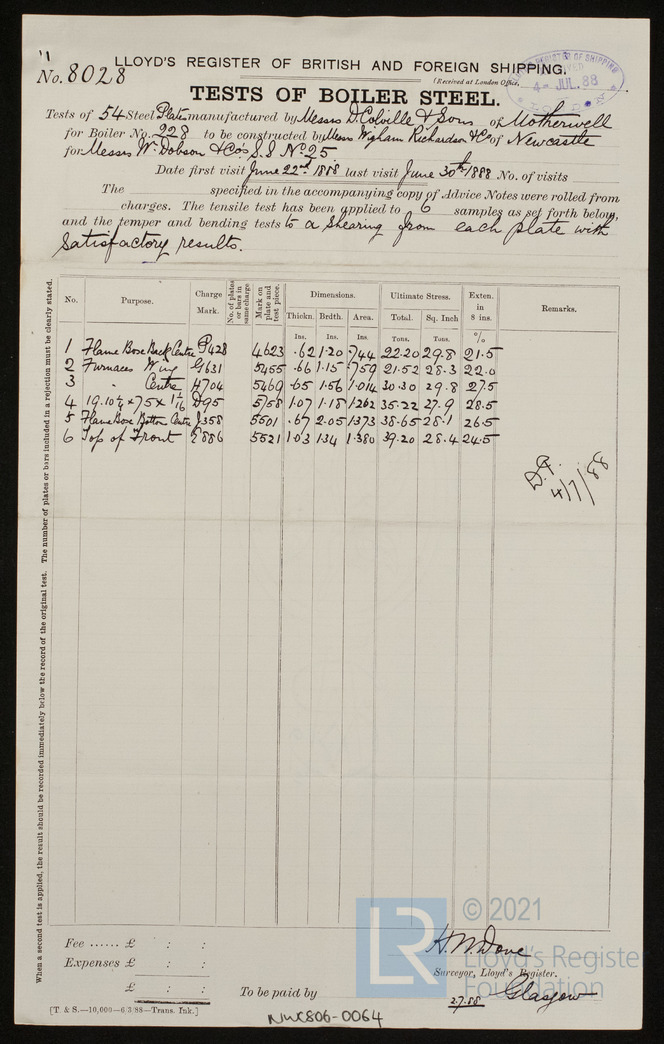 "
No. 8028
LLOYD'S REGISTER OF BRITISH AND FOREIGN SHIPPING.
(Received at London Office,
4 - JUL. 88
TESTS OF BOILER STEEL.
Tests of 54 Steel Plates manufactured by Messrs D. Colville & Sons of Motherwell
for Boiler No. 228 to be constructed by Messrs Wigham Richardson & Co of Newcastle
for Messrs W. Dobson & Co's S.S. No. 25
Date first visit June 22nd 1888 last visit June 30th/1888 No. of visits
The specified in the accompanying copy of Advice Notes were rolled from
charges. The tensile test has been applied to 6 samples as set forth below,
and the temper and bending tests to a shearing from each plate with
Satisfactory results.
When a second test is applied, the result should be recorded immediately below the record of the original test. The number of plates or bars included in a rejection must be clearly stated.
No. Purpose. Charge Mark. No. of plates or bars in same charge Mark on plate and test piece. Dimensions. Ultimate Stress. Exten. in 8 ins. Remarks.
Thickn. Brdth. Area. Total. Sq. Inch
Ins. Ins. Ins. Tons. Tons. %
1 Flame Boxe Back Centre P428 4623 .62 1.20 .744 22.20 29.8 21.5
2 Furnaces Wing G631 5455 .66 1.15 .759 21.52 28.3 22.0
3 " Centre H704 5469 .65 1.56 1.014 30.30 29.8 27.5
4 19.10¼ x 75 x 1 1/16 D95 5758 1.07 1.18 1.262 35.22 27.9 28.5
5 Flame Boxe Bottom Centre J358 5501 .67 2.05 1.373 38.65 28.1 26.5
6 Top of Front E886 5521 1.03 1.34 1.380 39.20 28.4 24.5
4/7/88
Fee ...... £ : :
Expenses £ : :
£ : :
To be paid by
H. N. Dove
Surveyor, Lloyd's Register.
2.7.88 Glasgow
[T. & S.—10,000—6/3/88—Trans. Ink.]
NWC806-0064
LR
© 2021
Lloyd's Register
Foundation